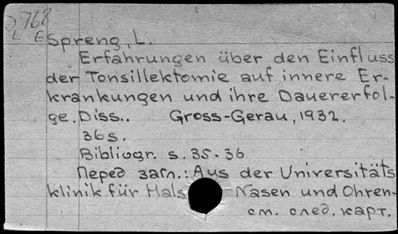 768
L E
Spreng, L.
Erfahrungen über den Einfluss
der Tonsillektomie auf innere Er-
krankungen und ihre Dauererfol-
ge. Diss.. Gross-Gerau, 1932.
36s.
Bibliogr. s. 35-36
Перед загл.: Aus der Universitäts
klinik für Hals Nasen und Ohren-
см. след. карт.